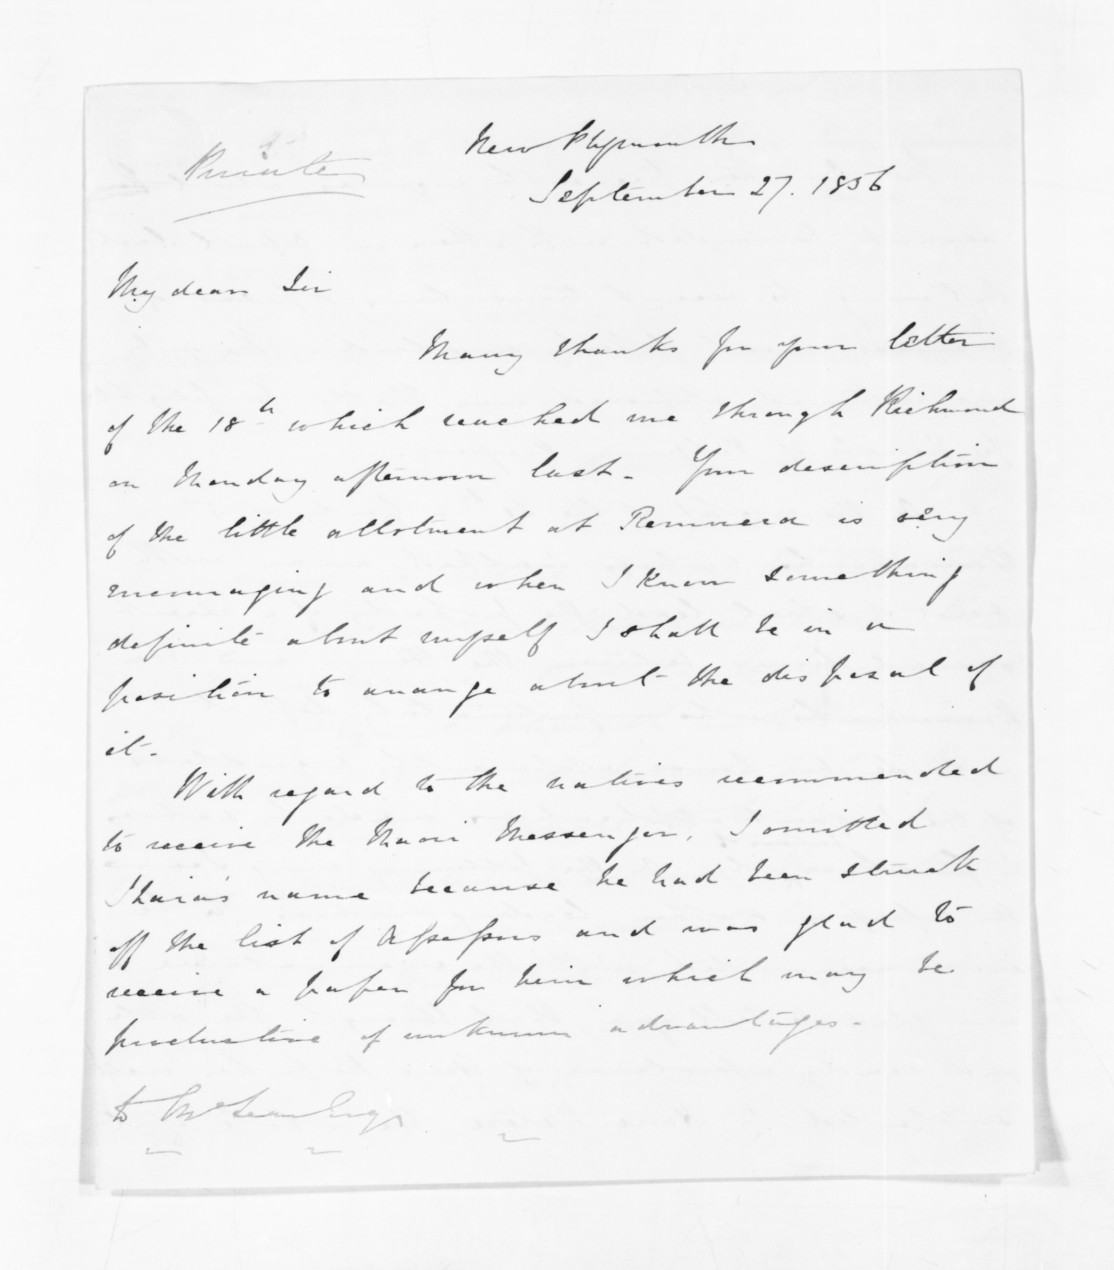 Private
New Plymouth
September 27. 1856
My dear Sir
Many thanks for your letter
of the 18th which reached me through Richmond
on Monday afternoon last. Your description
of the little allotment at Remuera is very
encouraging and when I know something
definite about myself I shall be in a
position to arrange about the disposal of
it.
With regard to the natives recommended
to receive the Maori Messenger, I omitted
Ihaia's name because he had been struck
off the list of Assessors and was glad to
receive a paper for him which may be
productive of unknown advantages.
to McLean Esq